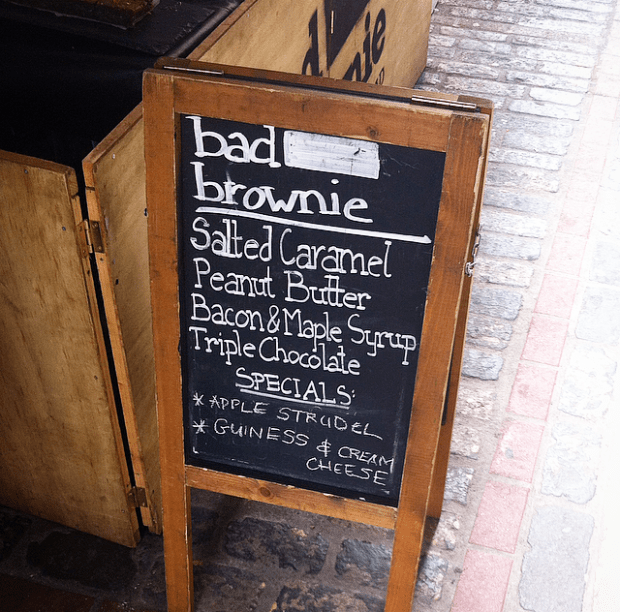 bad
brownie
Salted Caramel
Peanut Butter
Bacon & Maple Syrup
Triple Chocolate
SPECIALS:
* APPLE STRUDEL
* GUINESS & CREAM
CHEESE